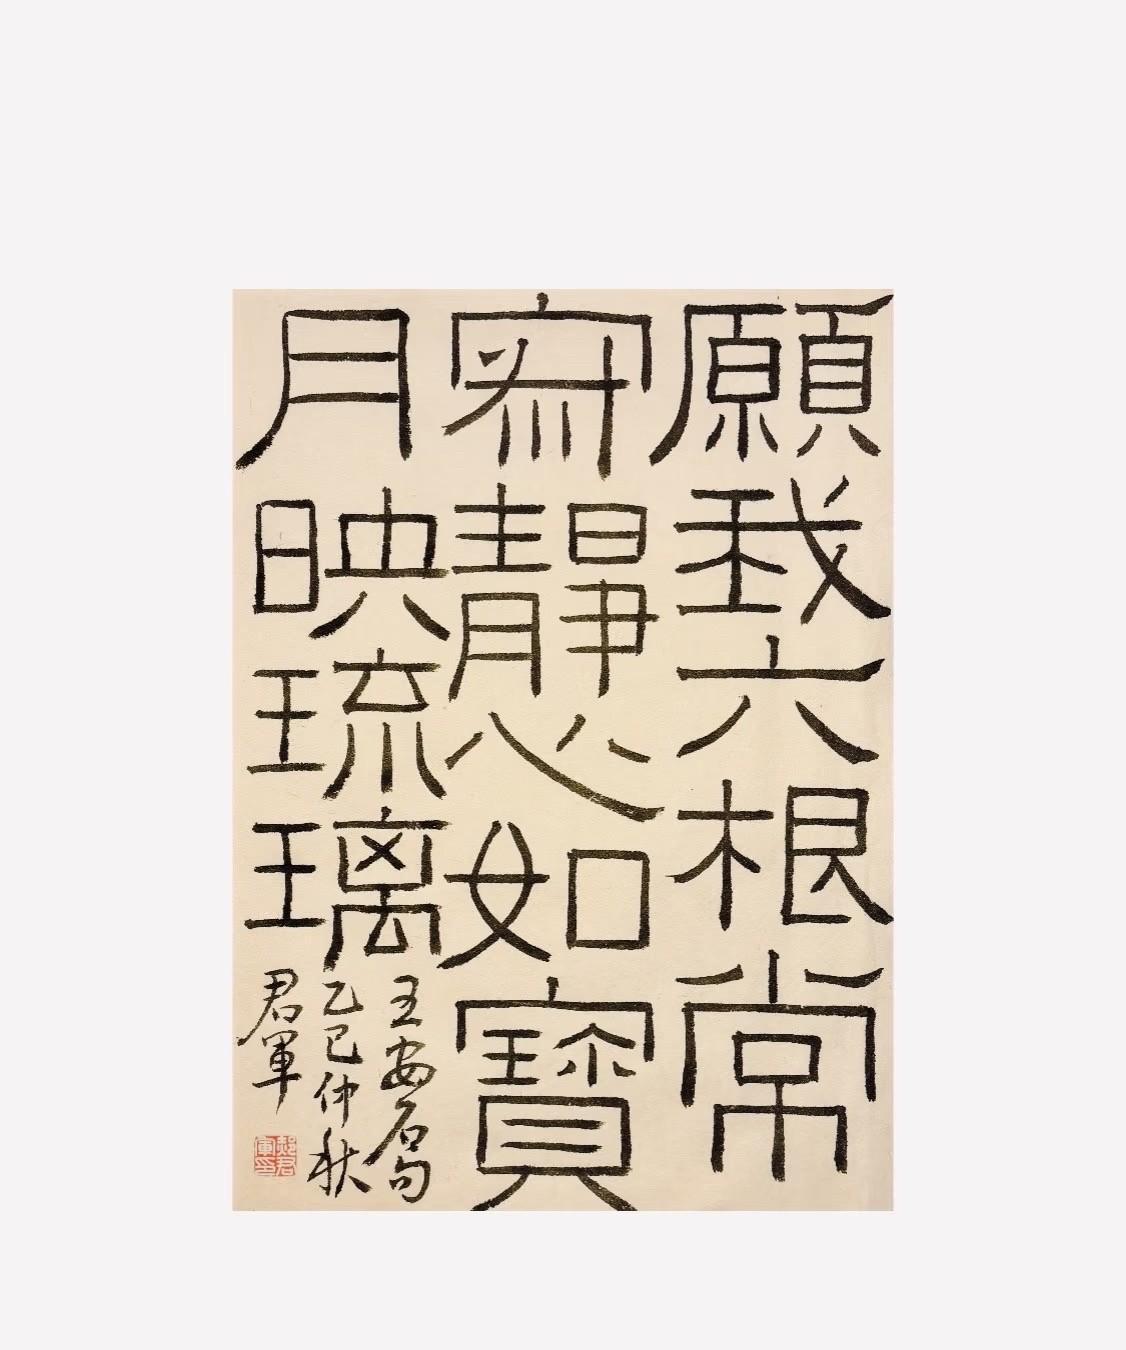 願我六根常
寂靜心如寶
月映琉璃
王安石句
乙巳仲秋
君軍